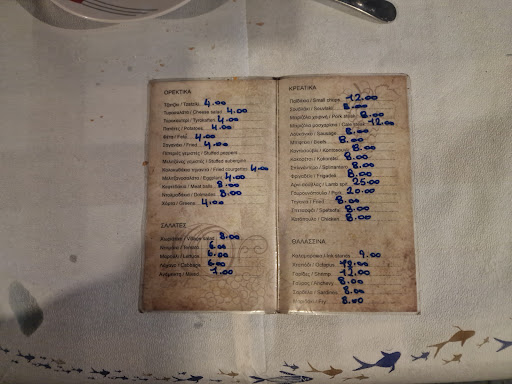 ΟΡΕΚΤΙΚΑ
Τζατζίκι / Tzatziki 4.00
Τυροσαλάτα / Cheese salad 4.00
Τυροκαυτερή / Tyrokafteri 4.00
Πατάτες / Potatoes 4.00
Φέτα / Feta 4.00
Σαγανάκι / Fried 4.00
Πιπεριές γεμιστές / Stuffed peppers
Μελιτζάνες γεμιστές / Stuffed aubergins
Κολοκυθάκια τηγανητά / Fried courgettes 4.00
Μελιτζανοσαλάτα / Eggplant 4.00
Κεφτεδάκια / Meat balls 8.00
Ντολμαδάκια / Dolmades 8.00
Χόρτα / Greens 4.00
ΣΑΛΑΤΕΣ
Χωριάτικη / Village salad 8.00
Ντομάτα / Tomato 6.00
Μαρούλι / Lettuce 6.00
Λάχανο / Cabbage 6.00
Ανάμεικτη / Mixed 7.00
ΚΡΕΑΤΙΚΑ
Παϊδάκια / Small chops 12.00
Σουβλάκι / Souvlaki 8.00
Μπριζόλα χοιρινή / Pork steak 8.00
Μπριζόλα μοσχαρίσια / 12.00
Λουκάνικο / Sausage 8.00
Μπιφτέκι / Beefs 8.00
Κοντοσούβλι / Kontosouvli 8.00
Κοκορέτσι / Kokoretsi 8.00
Σπληνάντερο / Splinantero 8.00
Φρυγαδέλι / Frigadeli 8.00
Αρνί σούβλας / Lamb spit 25.00
Γουρουνόπουλο / Pork 20.00
Τηγανιά / Fried 8.00
Συκωταριά / 8.00
Κοτόπουλο / Chicken 8.00
ΘΑΛΑΣΣΙΝΑ
Καλαμαράκια / 9.00
Χταπόδι / Octapus
Γαρίδες / Shrimp 12.00
Γαύρος / Anchovy 8.00
Σαρδέλα / Sardines 8.00
8.00